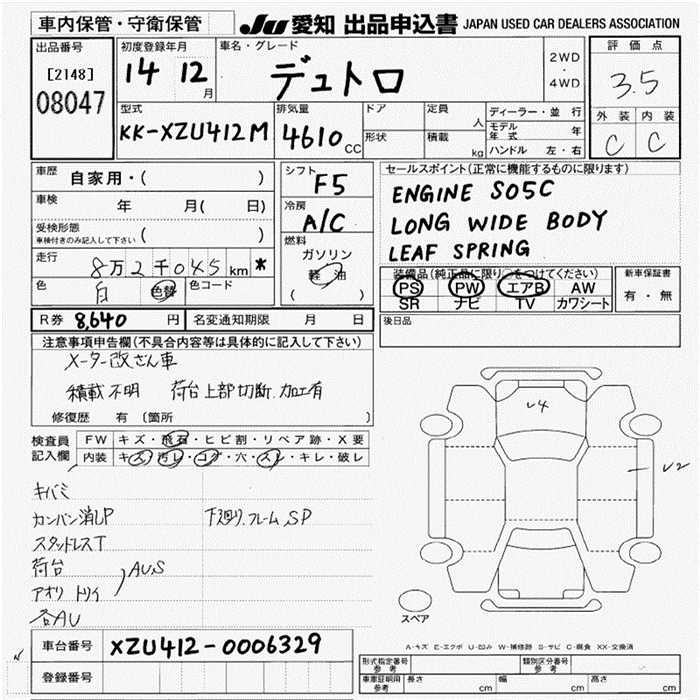 車内保管・守衛保管
JU 愛知 出品申込書 JAPAN USED CAR DEALERS ASSOCIATION
出品番号
[2148]
08047
初度登録年月
14 12 月
車名・グレード
デュトロ
2WD
・
4WD
評価点
3.5
外装 内装
C C
型式
KK-XZU412M
排気量
4610 CC
ドア
形状
定員 人
積載 kg
ディーラー・並行
モデル年式 年
ハンドル 左・右
車歴 自家用・( )
車検 年 月( 日)
受検形態
車検付きのみ記入して下さい ( )
走行 8万2千045km *
色 白 色替 色コード
シフト
F5
冷房
A/C
燃料
ガソリン
軽油
( )
セールスポイント(正常に機能するものに限ります)
ENGINE S05C
LONG WIDE BODY
LEAF SPRING
装備品(純正品に限り○をつけてください)
PS PW エアB AW
SR ナビ TV カワシート
新車保証書
有・無
R券 8,640 円 名変通知期限 月 日
後日品
注意事項申告欄(不具合内容等は具体的に記入して下さい)
メーター改ざん車
積載不明 荷台上部切断.加工有
修復歴 有 (箇所 )
検査員
記入欄
FW キズ・飛石・ヒビ割・リペア跡・X要
内装 キズ・汚レ・コゲ・穴・スレ・キレ・破レ
キバミ
カンバン消しP 下廻り.フレーム SP
スタッドレスT
荷台
アオリ トリイ AUS
各AU
V4
V2
スペア
A-キズ E-エクボ U-凹み W-補修跡 S-サビ C-腐食 XX-交換済
車台番号 XZU412-0006329
登録番号
形式指定番号
参考
類別区分番号
参考
車庫証明用
参考
長さ cm 幅 cm 高さ cm